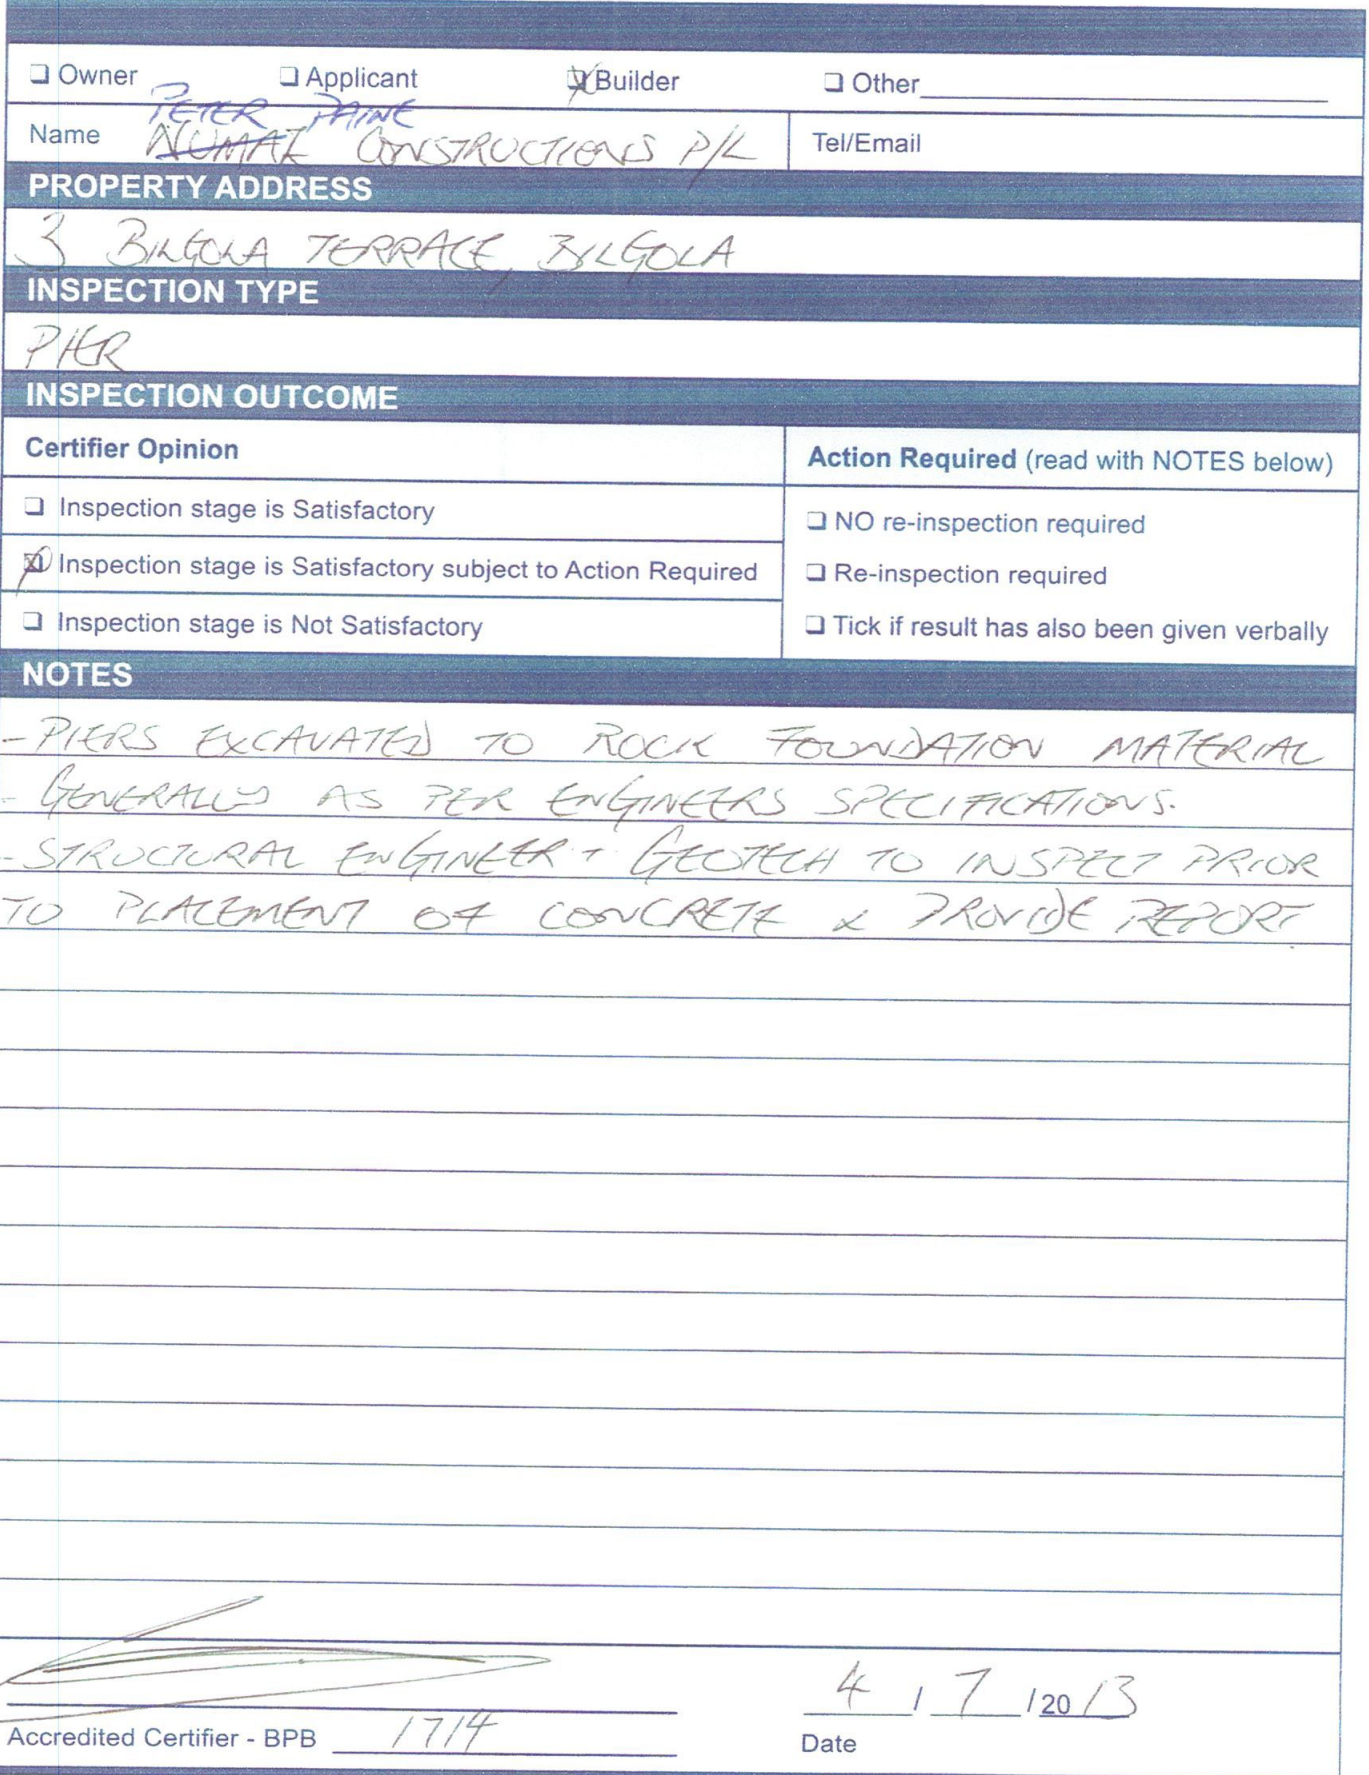 ❑ Owner ❑ Applicant ☒ Builder ❑ Other
PETER PAINE
Name NUMAK CONSTRUCTIONS P/L Tel/Email
PROPERTY ADDRESS
3 BILGOLA TERRACE, BILGOLA
INSPECTION TYPE
PIER
INSPECTION OUTCOME
Certifier Opinion Action Required (read with NOTES below)
❑ Inspection stage is Satisfactory ❑ NO re-inspection required
☒ Inspection stage is Satisfactory subject to Action Required ❑ Re-inspection required
❑ Inspection stage is Not Satisfactory ❑ Tick if result has also been given verbally
NOTES
- PIERS EXCAVATED TO ROCK FOUNDATION MATERIAL
- GENERALLY AS PER ENGINEERS SPECIFICATIONS.
- STRUCTURAL ENGINEER + GEOTECH TO INSPECT PRIOR
TO PLACEMENT OF CONCRETE & PROVIDE REPORT
4 / 7 / 20 13
Accredited Certifier - BPB 1714 Date